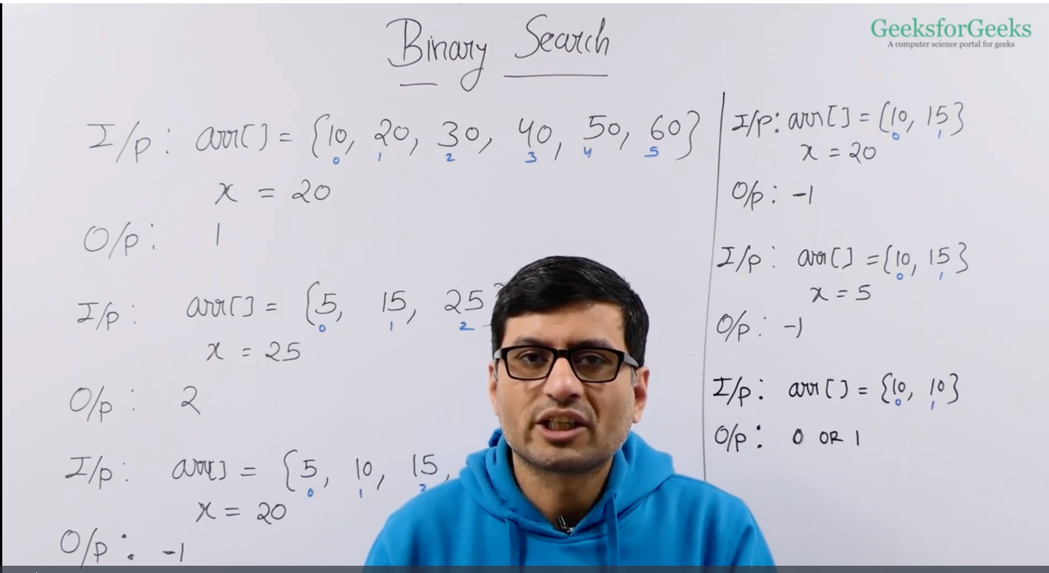 Binary Search
GeeksforGeeks
A computer science portal for geeks
I/p: arr[] = {10, 20, 30, 40, 50, 60}
0 1 2 3 4 5
x = 20
O/p: 1
I/p: arr[] = {5, 15, 25}
0 1 2
x = 25
O/p: 2
I/p: arr[] = {5, 10, 15,
0 1 2
x = 20
O/p: -1
I/p: arr[] = {10, 15}
0 1
x = 20
O/p: -1
I/p: arr[] = {10, 15}
0 1
x = 5
O/p: -1
I/p: arr[] = {10, 10}
0 1
O/p: 0 OR 1